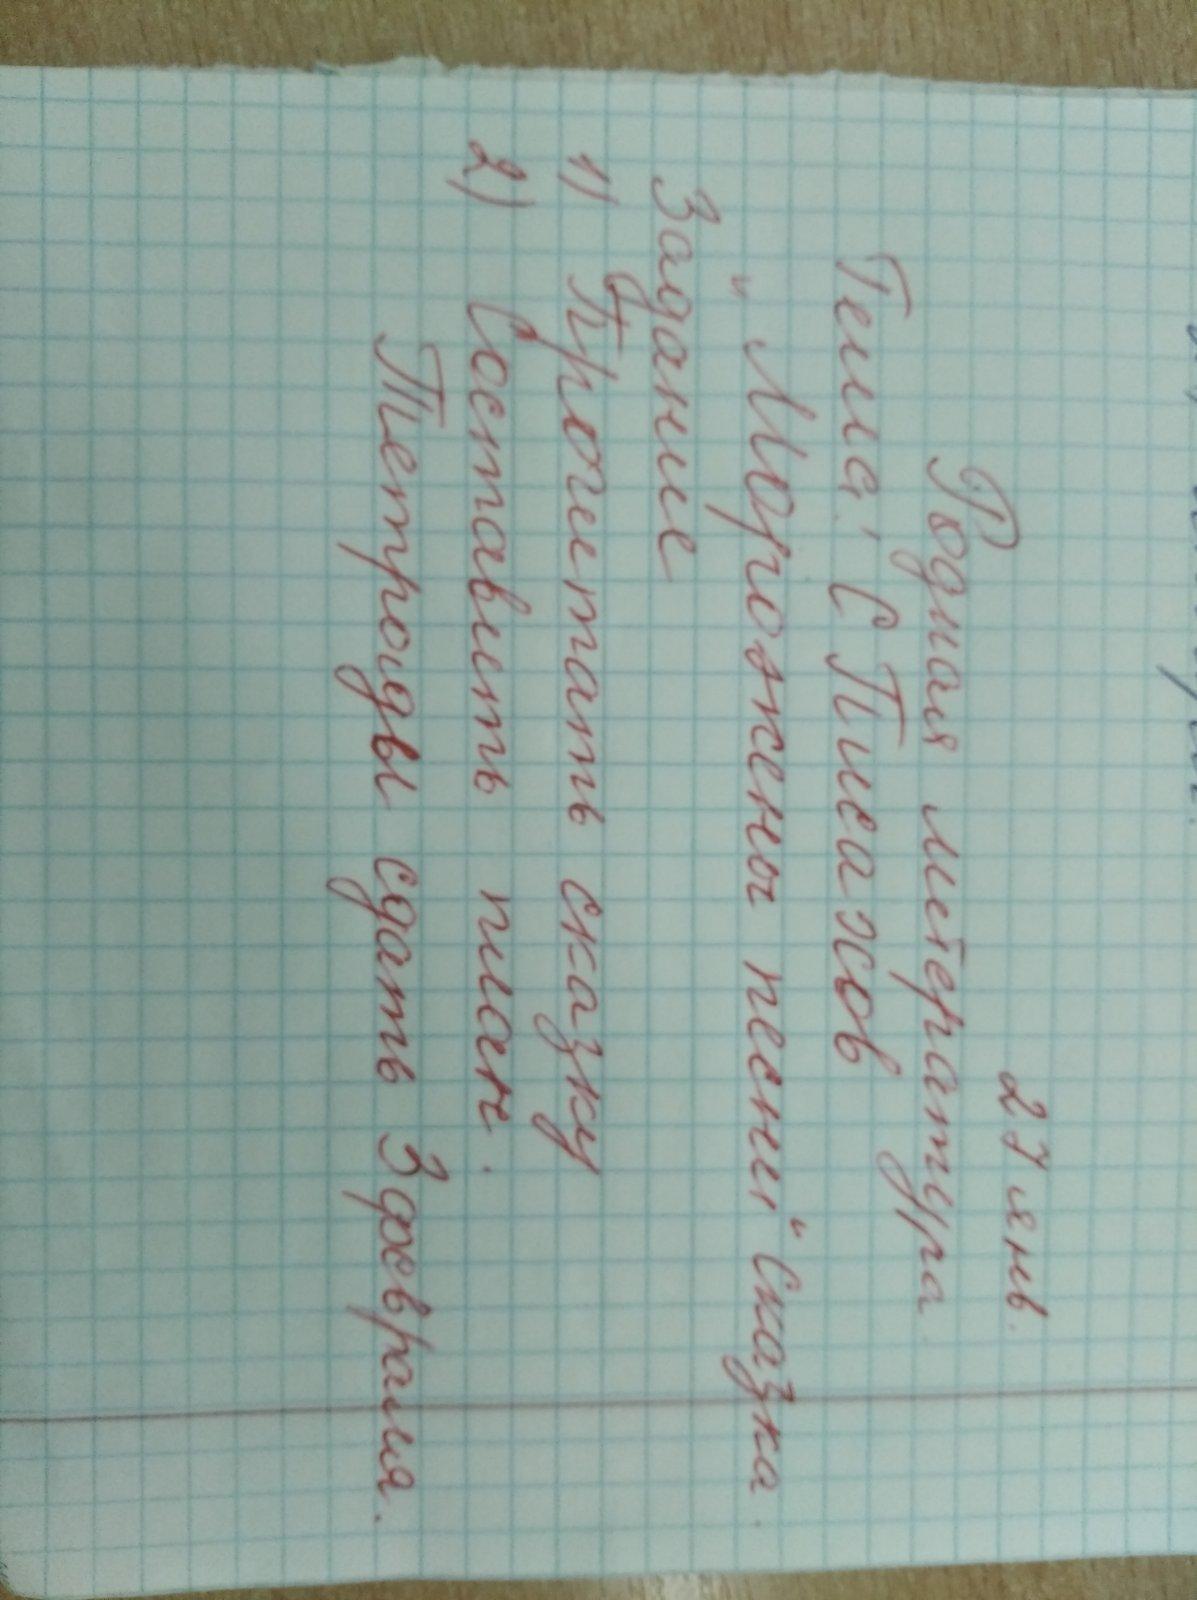 27 янв.
Родная литература
Тема: С Писахов
"Морожены песни" сказка.
Задание
1) Прочитать сказку
2) Составить план.
Тетради сдать 3 февраля.